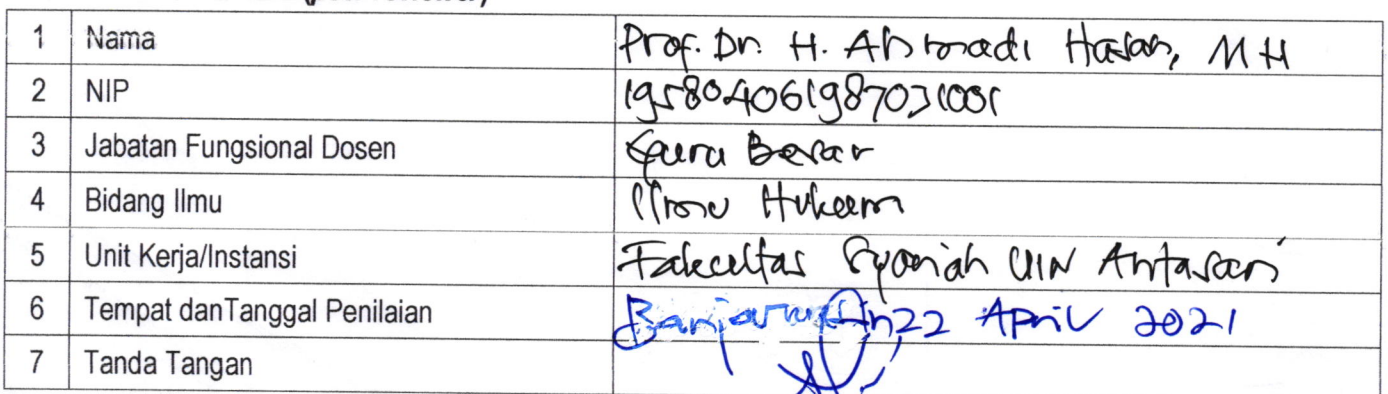 1 Nama Prof. Dr. H. Ahmadi Hasan, MH
2 NIP 195804061987031001
3 Jabatan Fungsional Dosen Guru Besar
4 Bidang Ilmu Ilmu Hukum
5 Unit Kerja/Instansi Fakultas Syariah UIN Antasari
6 Tempat danTanggal Penilaian Banjarmasin 22 April 2021
7 Tanda Tangan